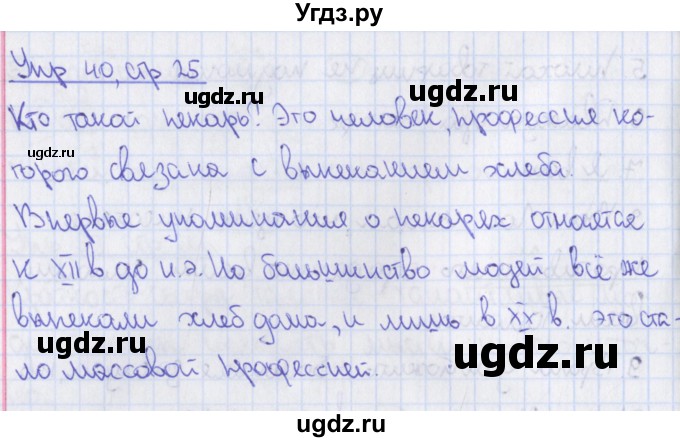 Угдз.ру
Упр 40, стр 25
Кто такой пекарь? Это человек, профессия ко-
торого связана с выпеканием хлеба.
Впервые упоминания о пекарях относятся
к XII в до н.э. Но большинство людей всё же
выпекали хлеб дома, и лишь в XX в. это ста-
ло массовой профессией.
ugdz.ru
ugdz.ru
ugdz.ru
ugdz.ru
ugdz.ru
ugdz.ru
ugdz.ru
ugdz.ru